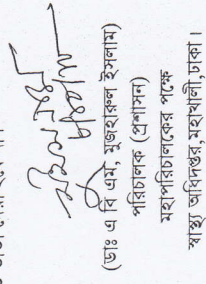 (ডাঃ এ বি এম, মুজহারুল ইসলাম)
পরিচালক (প্রশাসন)
মহাপরিচালকের পক্ষে
স্বাস্থ্য অধিদপ্তর,মহাখালী,ঢাকা।